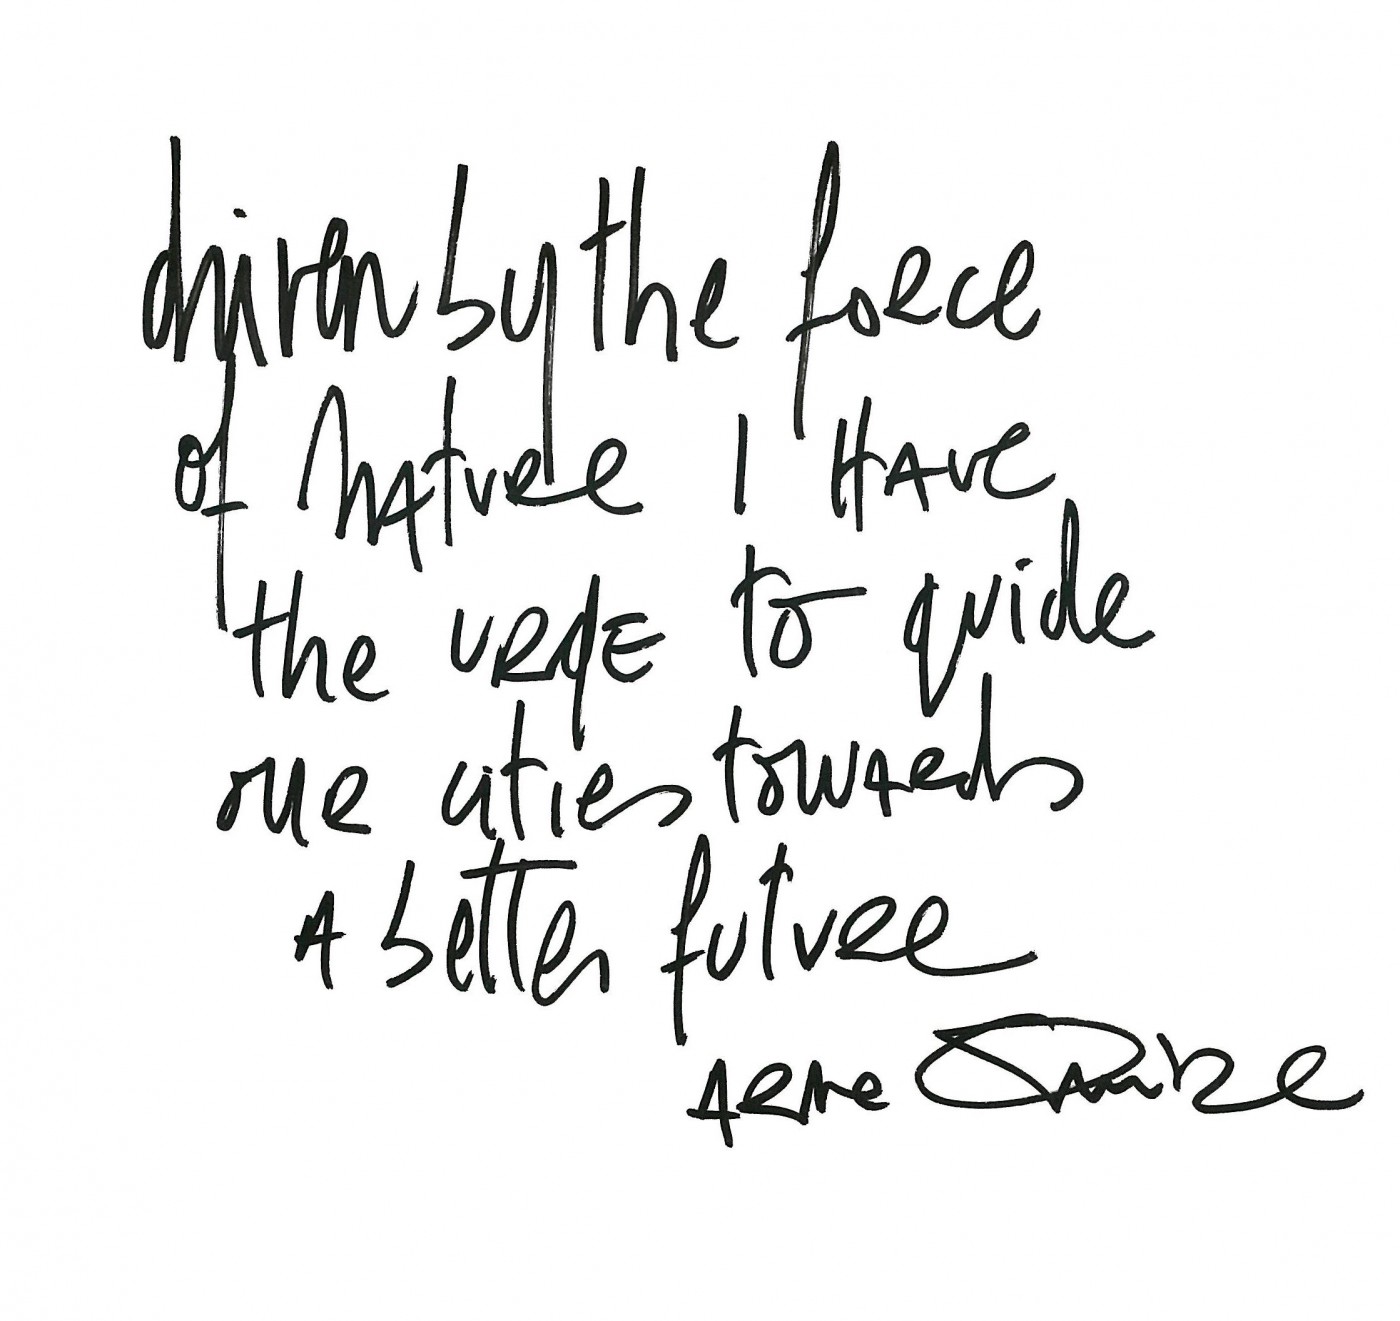 driven by the force
of nature I HAVE
the URgE to guide
our cities towards
A better future
ARne Quinze